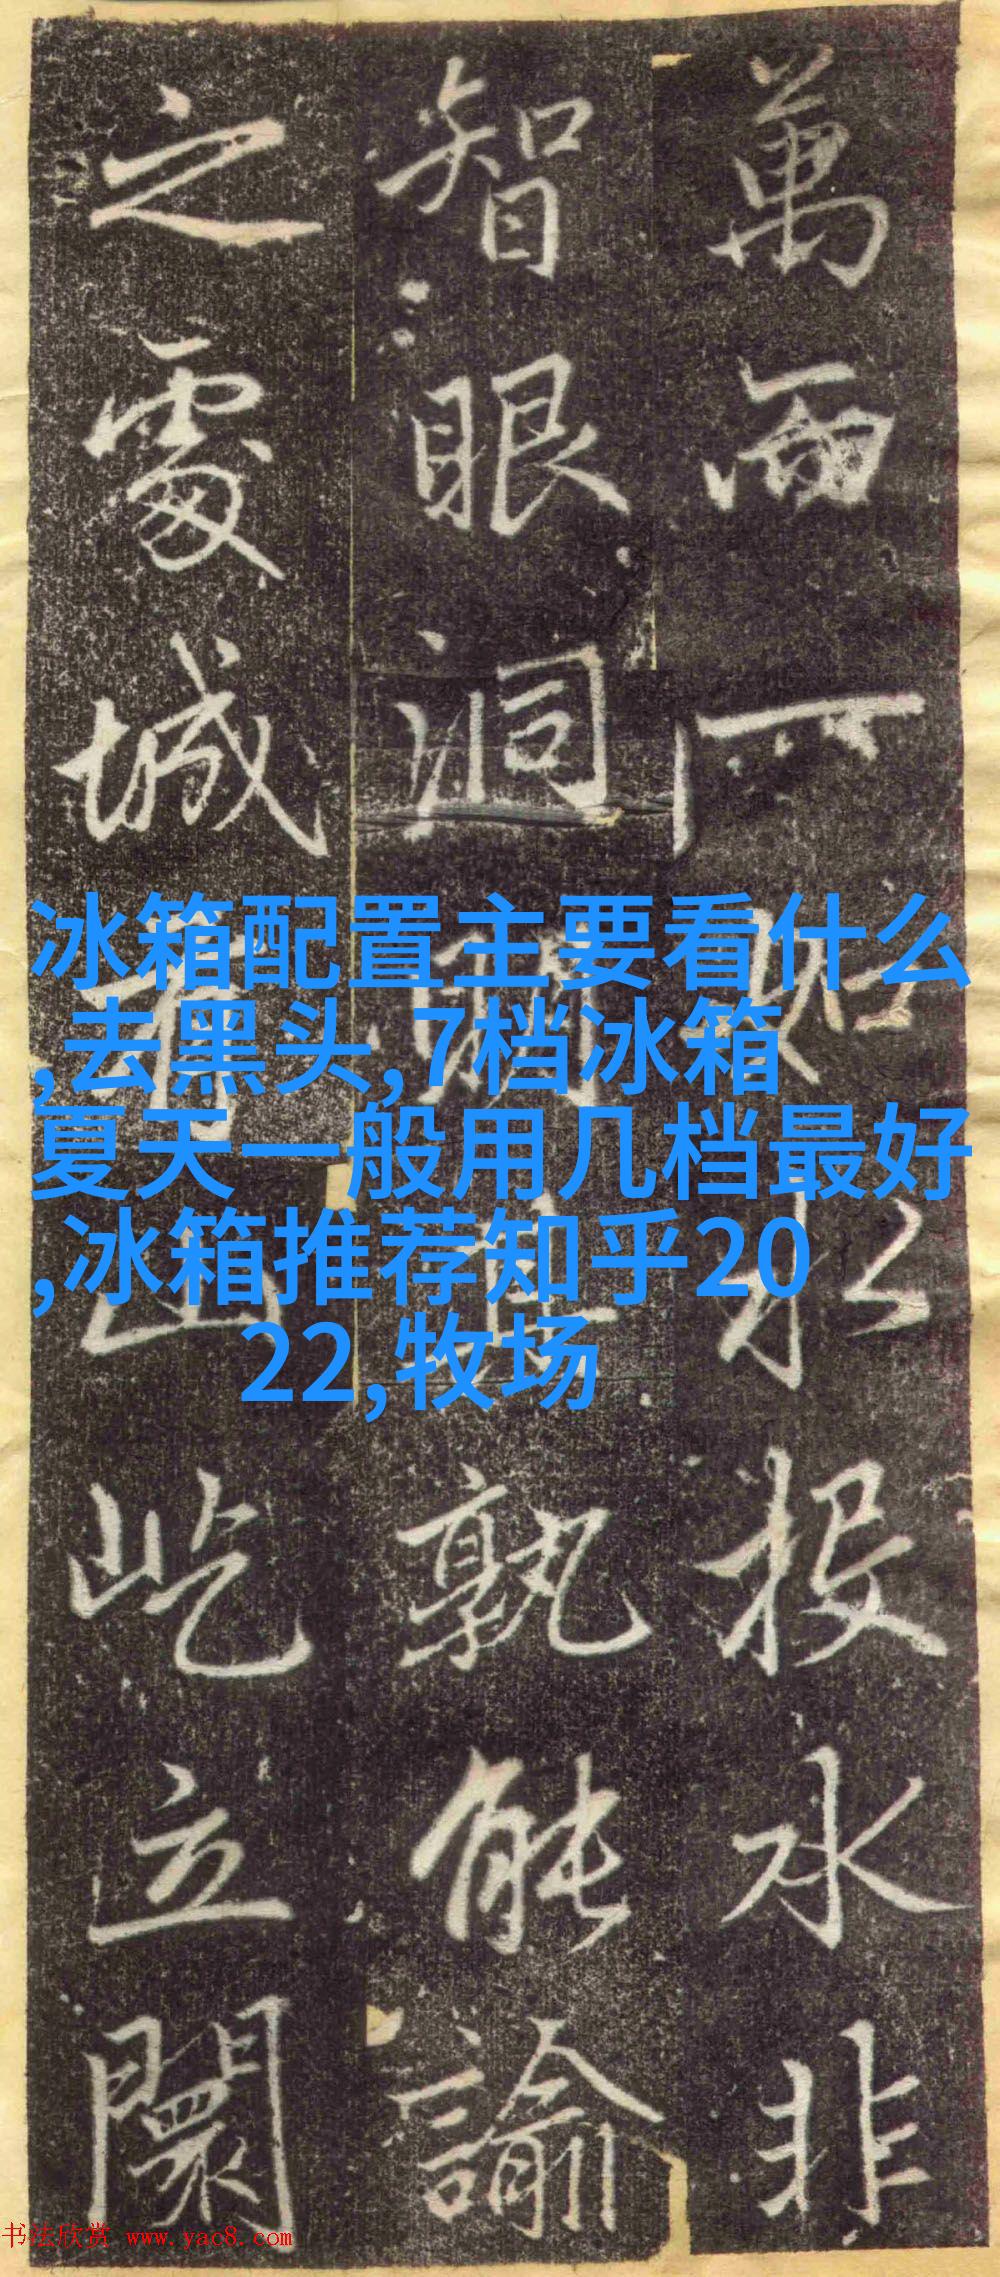 萬
投水非
智眼洞
孰能諭
之處城
山屹立闤
冰箱配置主要看什么
,去黑头,7档冰箱
夏天一般用几档最好
,冰箱推荐知乎20
22,牧场
书法欣赏 www.yac8.com